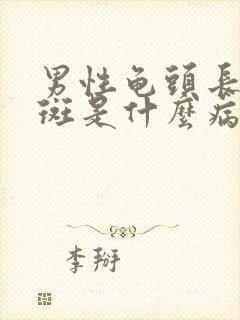 男性龟頭長
斑是什麼病
李掰